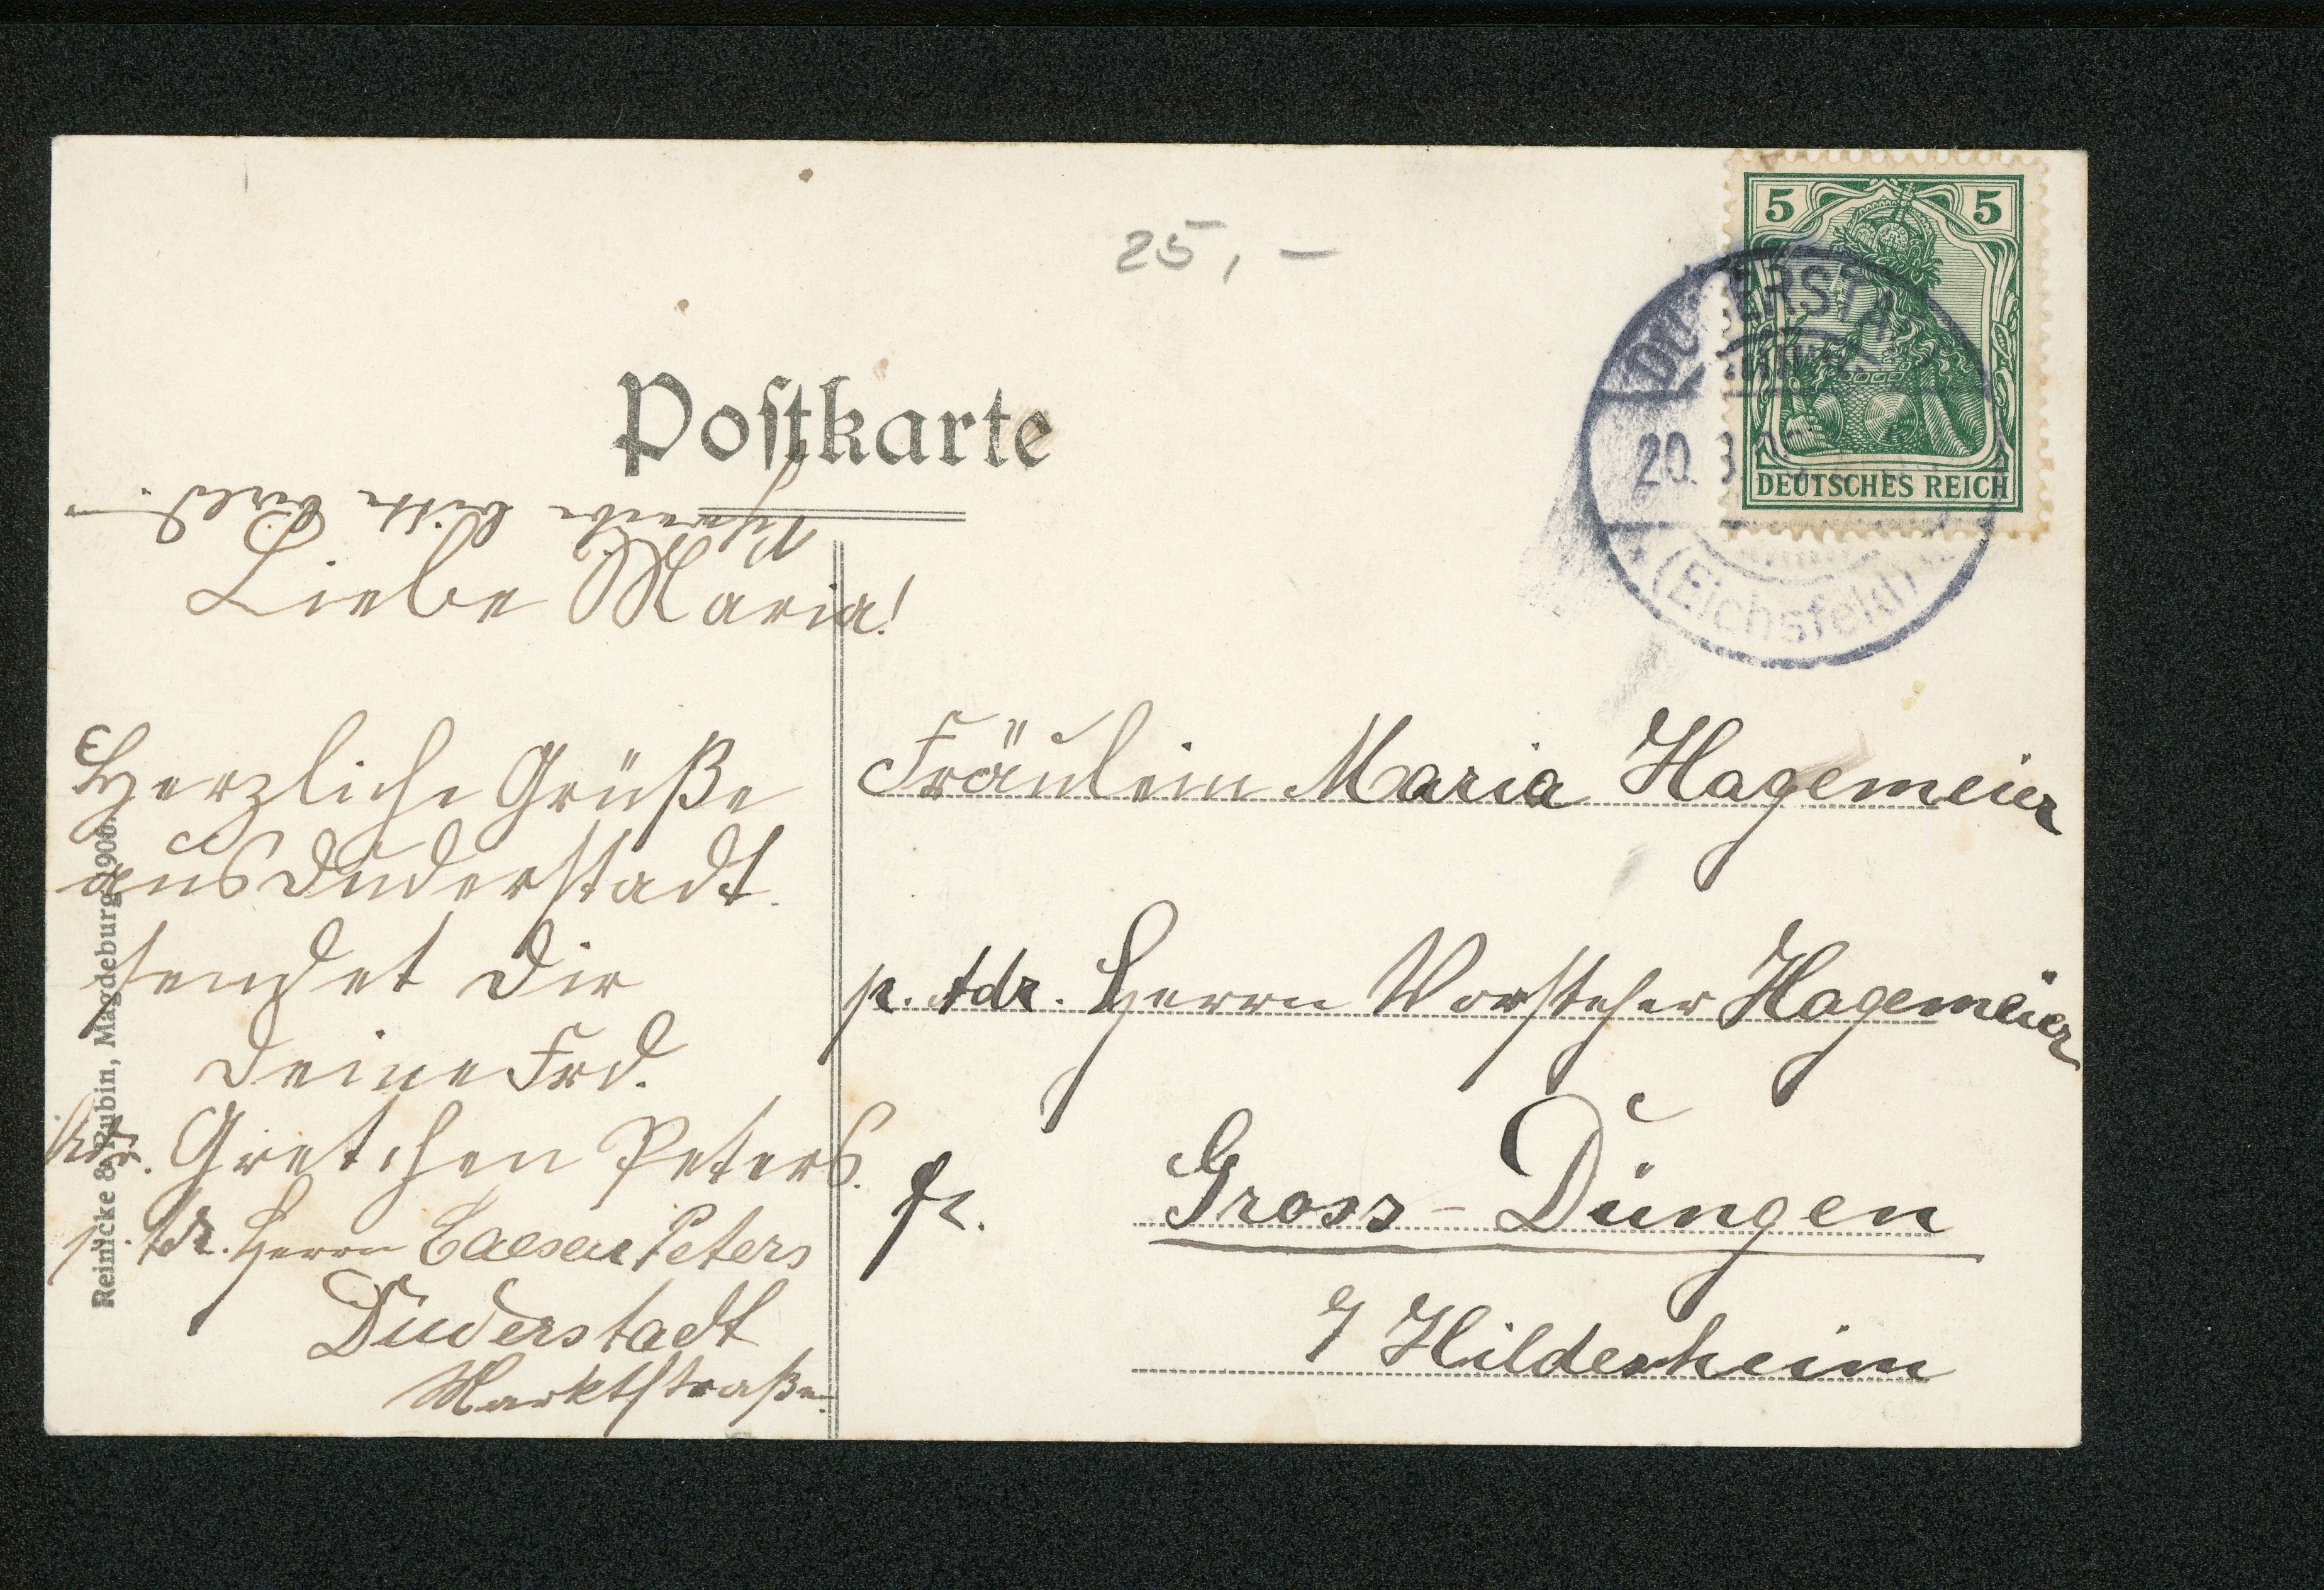 25,–
5 5
DEUTSCHES REICH
DUDERSTA
20. 3
(Eichsfeld)
Postkarte
Schreibe bitte bald.
Liebe Maria!
Herzliche Grüße
aus Duderstadt
sendet Dir
Deine Frd.
Gretchen Peters.
p. Adr. Herrn Caesar Peters
Duderstadt
Marktstraße
Fräulein Maria Hagemeier
p. Adr. Herrn Vorsteher Hagemeier
Gross-Düngen
Hildesheim
Reinicke & Rubin, Magdeburg 1906.